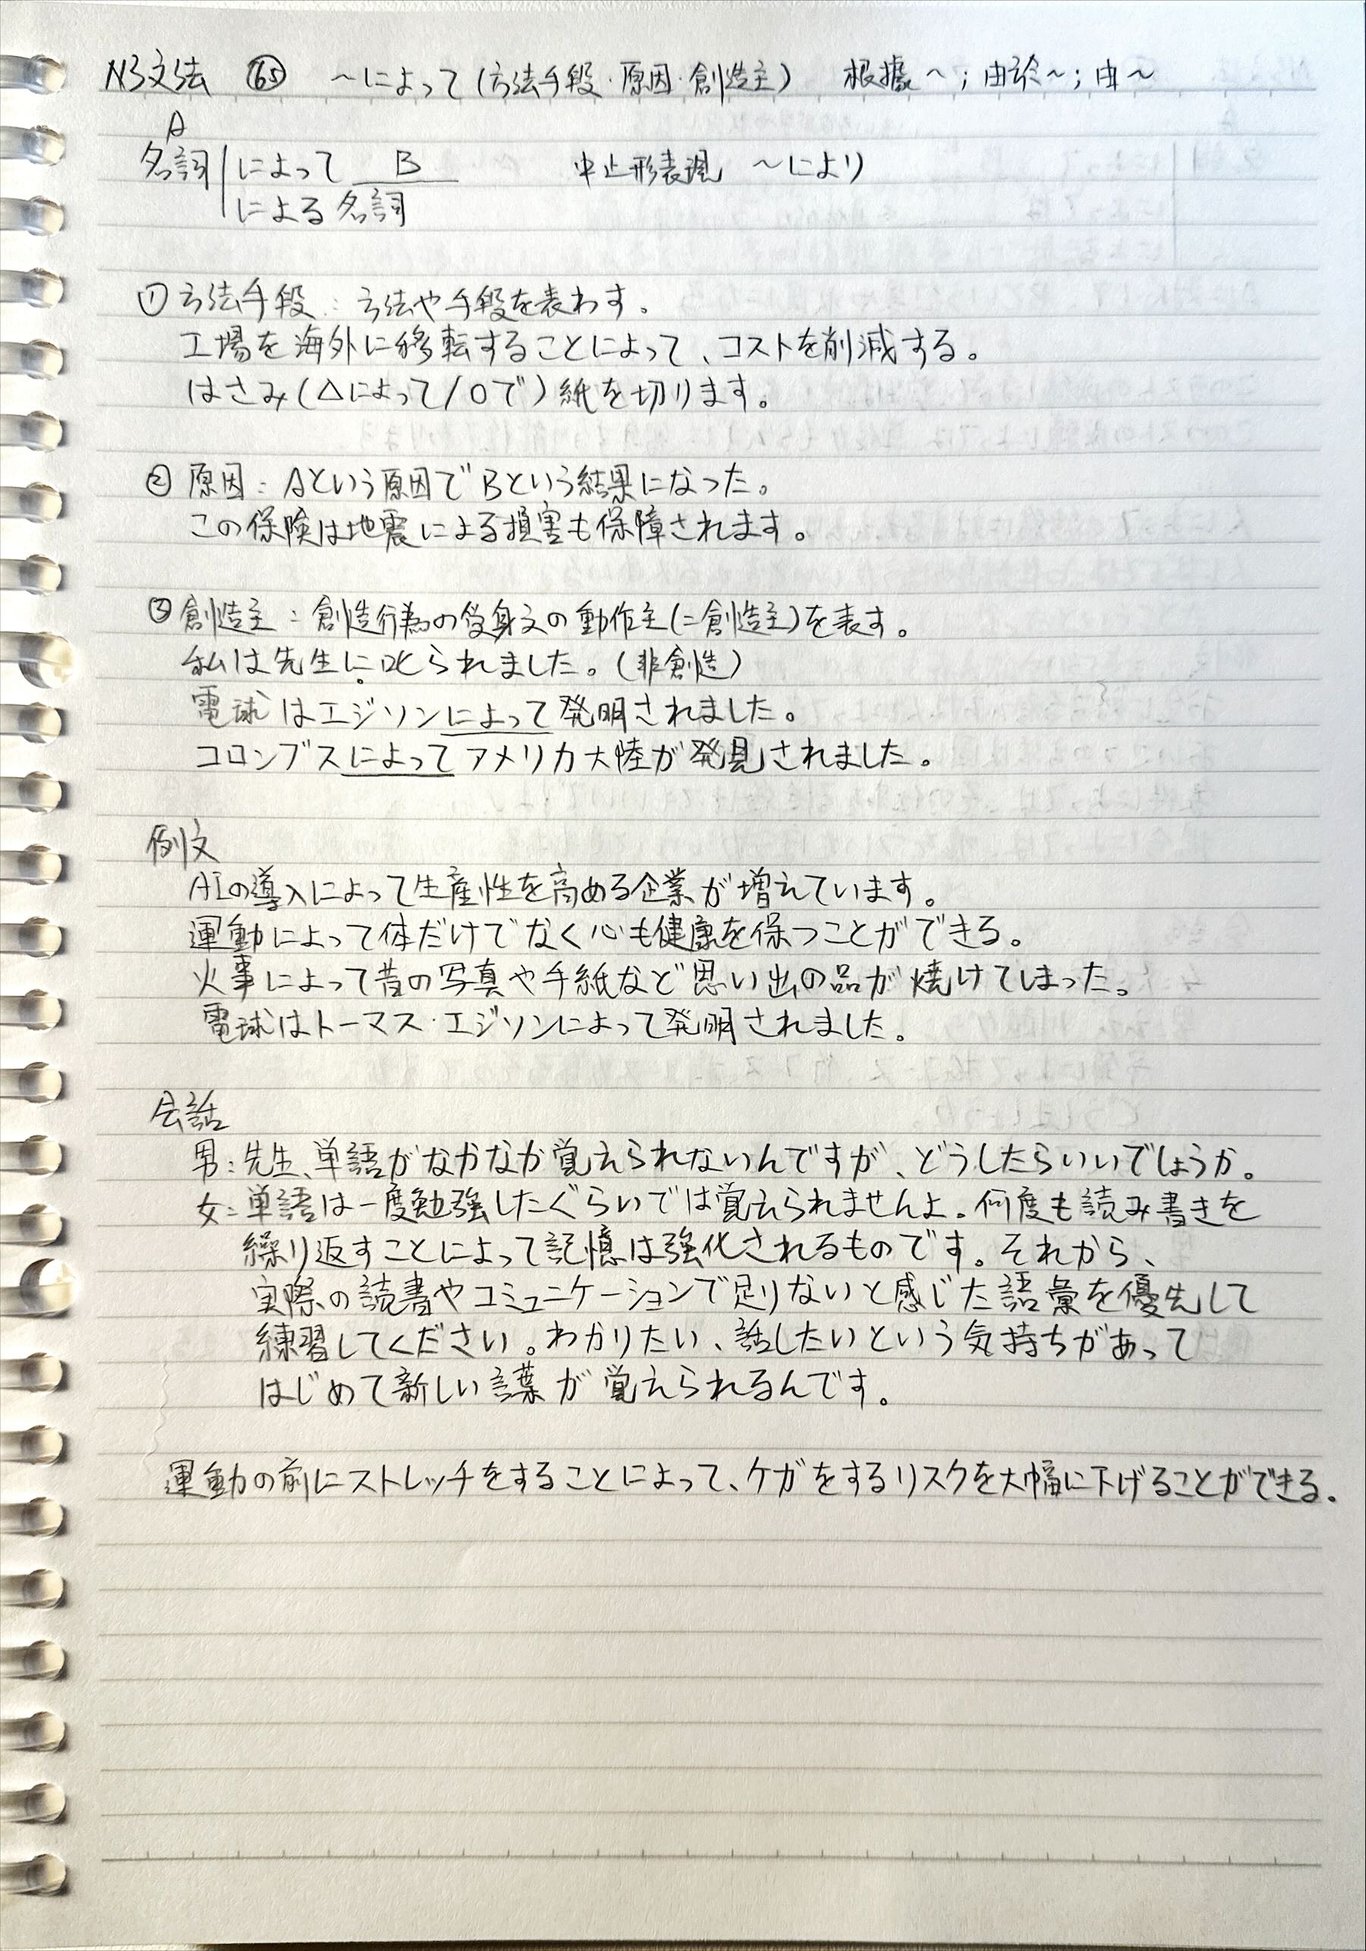 N3文法 65 ～によって(方法手段・原因・創造主) 根據～;由於～;由～
A
名詞 によって B 中止形表現 ～により
による 名詞
① 方法手段:方法や手段を表わす。
工場を海外に移転することによって、コストを削減する。
はさみ(△によって/○で)紙を切ります。
② 原因:Aという原因でBという結果になった。
この保険は地震による損害も保障されます。
③ 創造主:創造行為の受身文の動作主(=創造主)を表す。
私は先生に叱られました。(非創造)
電球はエジソンによって発明されました。
コロンブスによってアメリカ大陸が発見されました。
例文
AIの導入によって生産性を高める企業が増えています。
運動によって体だけでなく心も健康を保つことができる。
火事によって昔の写真や手紙など思い出の品が焼けてしまった。
電球はトーマス・エジソンによって発明されました。
会話
男:先生、単語がなかなか覚えられないんですが、どうしたらいいでしょうか。
女:単語は一度勉強したぐらいでは覚えられませんよ。何度も読み書きを
繰り返すことによって記憶は強化されるものです。それから、
実際の読書やコミュニケーションで足りないと感じた語彙を優先して
練習してください。わかりたい、話したいという気持ちがあって
はじめて新しい言葉が覚えられるんです。
運動の前にストレッチをすることによって、ケガをするリスクを大幅に下げることができる。